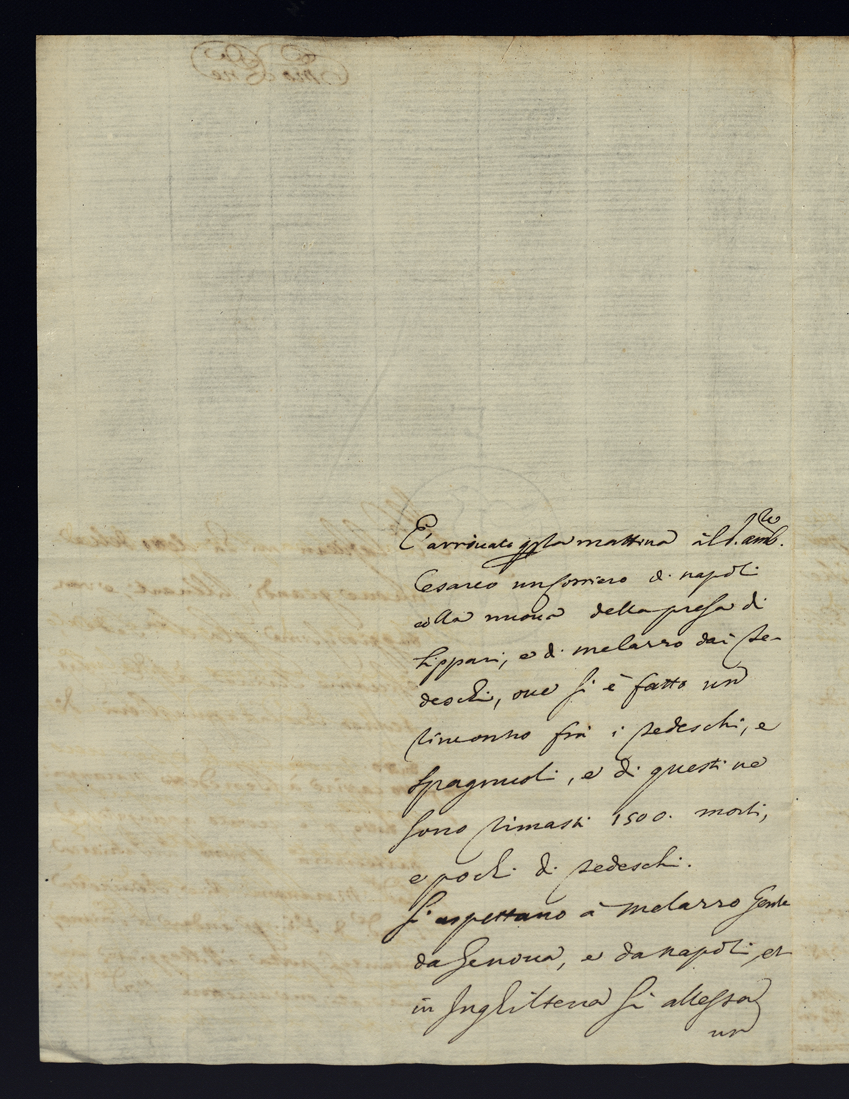 E' arrivato qsta mattina al S. amb.re
Cesareo un Corriero di napoli
colla nuova della presa di
Lippari, e di melazzo dai te-
deschi, ove si è fatto un
rincontro frà i tedeschi, e
spagnuoli, e di questi ne
sono rimasti 1500. morti,
e pochi di tedeschi.
si aspettano à melazzo Gente
da Genova, e da napoli, et
in Inghilterra si allestva
un